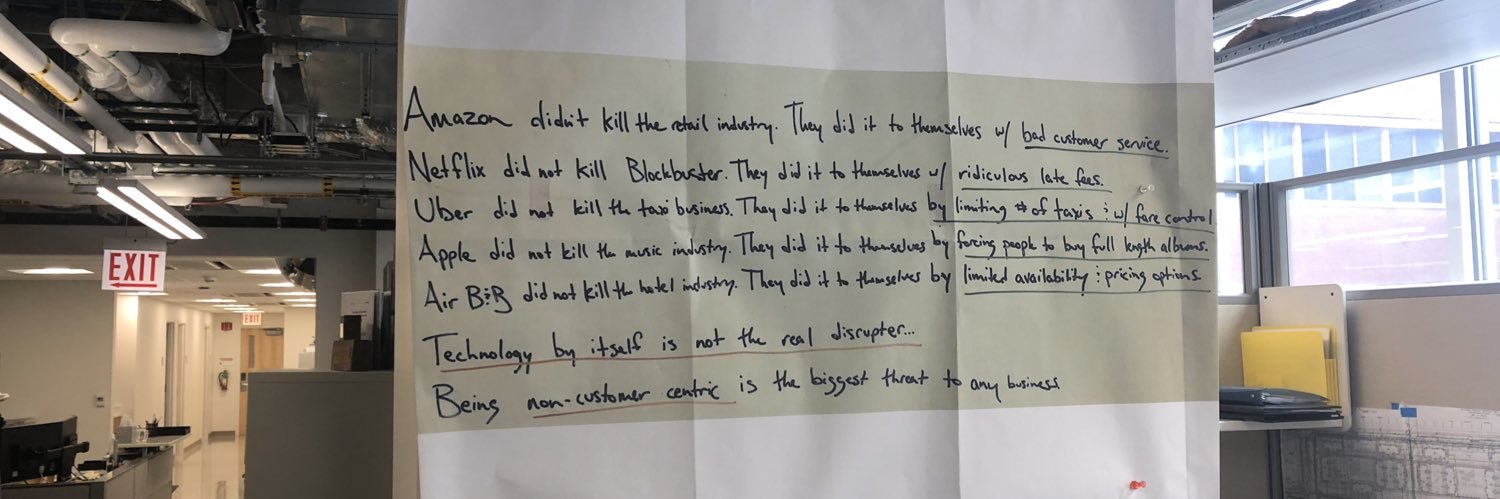 Amazon didn't kill the retail industry. They did it to themselves w/ bad customer service.
Netflix did not kill Blockbuster. They did it to themselves w/ ridiculous late fees.
Uber did not kill the taxi business. They did it to themselves by limiting # of taxis & w/ fare control
Apple did not kill the music industry. They did it to themselves by forcing people to buy full length albums.
Air B&B did not kill the hotel industry. They did it to themselves by limited availability & pricing options.
Technology by itself is not the real disrupter...
Being non-customer centric is the biggest threat to any business
EXIT
EXIT